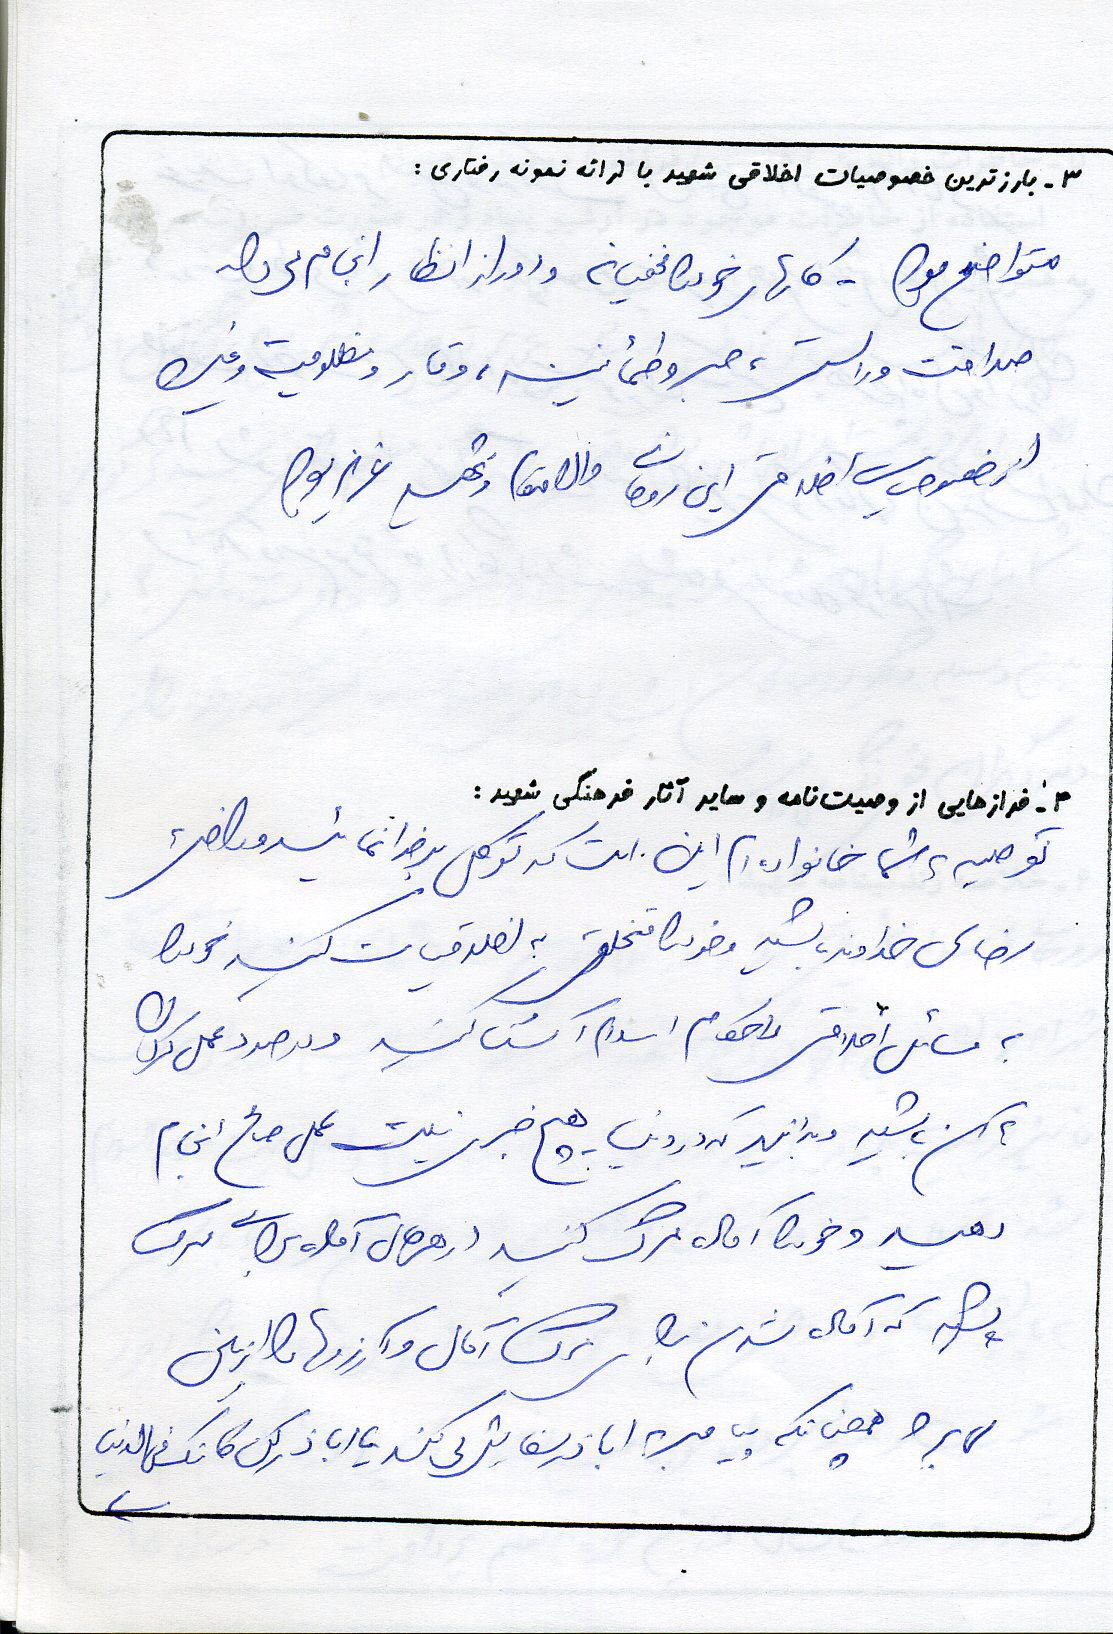 ۳- بارزترین خصوصیات اخلاقی شهید با ارائه نمونه رفتاری :
متواضع بود - کارهای خود را مخفیانه و دور از انظار انجام می داد
صداقت و راستی ، صبر و طمأنینه ، وقار و مظلومیت و غیره
از خصوصیات اخلاقی این روحانی والامقام و شهید عزیز بود
۴- فرازهایی از وصیت‌نامه و سایر آثار فرهنگی شهید :
توصیه به شما خانواده ام این است که توکل بر خدا نمائید و راضی به
رضای خداوند باشید و خود را متخلق به اخلاقیات کنید خود را
به مسائل اخلاقی و احکام اسلام آشنا کنید و در صدد عمل کردن
به آن باشید و بدانید که در دنیا هیچ خبری نیست عمل صالح انجام
دهید و خود را آماده مرگ کنید در هر حال آماده برای مرگ
باشید که آماده شدن برای مرگ آمال و آرزوها را از بین
می برد همچنانکه پیامبر به اباذر سفارش می کند یا اباذر کن کانک فی الدنیا